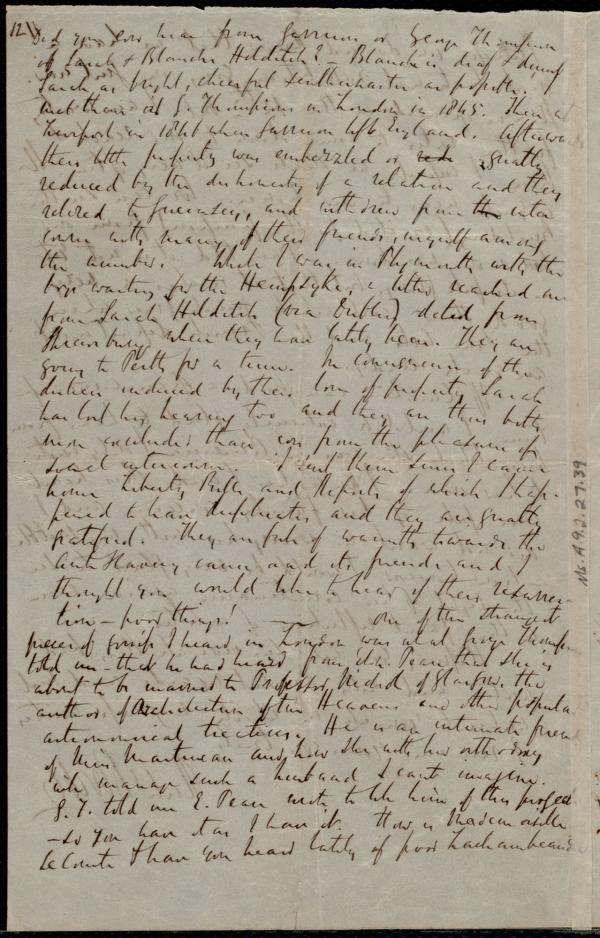 12) Did you ever hear from Garrison or George Thompson
of Sarah & Blanche Hilditch? – Blanche is deaf & dumb
Sarah as bright, cheerful as possible. I
met them at G. Thompson's in London in 1845. Then at
Liverpool in 1846 when Garrison left England. Afterwards
their little property was embezzled or greatly
reduced by the dishonesty of a relation and they
retired to Guernsey, and withdrew from the inter
course with many of their friends, myself among
the number. While I was in Plymouth with the
boys waiting for the Hempsyke, a letter reached me
from Sarah Hilditch (via Dublin) dated from
Shrewsbury where they have lately been. They are
going to Perth for a time. In consequence of the
distress induced by their loss of property, Sarah
has lost her hearing too and they are thus both
more excluded than ever from the pleasure of
social intercourse. I sent them since I came
home Liberty Bells and Reports of which I hap-
pened to have duplicates and they are greatly
gratified. They are full of warmth towards the
Anti Slavery cause and its friends and I
thought you would like to hear of their resurrec-
tion – poor things! — One of the strangest
pieces of gossip I heard in London was what George Thompson
told me – that he had heard from Eliz. Pease that she is
about to be married to Professor Nichol of Glasgow, the
author of Architecture of the Heavens and other popular
astronomical treatises. He is an intimate friend
of Miss Martineau and how she with her orthodoxy
will manage such a husband I can't imagine.
G. T. told me E. Pease wrote to tell him of this project
– so you have it as I have it. How is Madison
& have you heard lately of poor
Ms. A.9.2.27.39